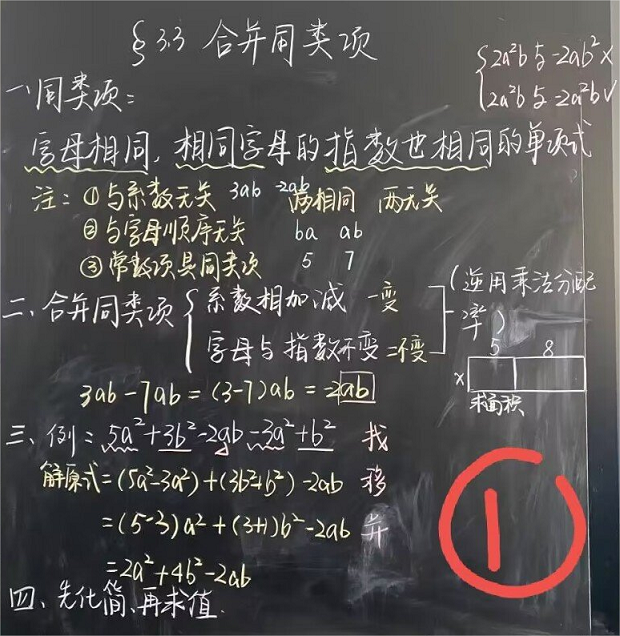 §3.3 合并同类项
{2a²b与-2ab² ×
2a²b与-2a²b √
一、同类项：
字母相同，相同字母的指数也相同的单项式
注：①与系数无关 3ab 2ab 两相同 两无关
②与字母顺序无关 ba ab
③常数项是同类项 5 7
二、合并同类项 { 系数相加减 一变
字母与指数不变 二不变
(逆用乘法分配
率)
5 8
x
求面积
3ab-7ab=(3-7)ab=2ab
三、例：5a²+3b²-2ab-3a²+b² 找
解原式=(5a²-3a²)+(3b²+b²)-2ab 移
=(5-3)a²+(3+1)b²-2ab 并
=2a²+4b²-2ab
四、先化简、再求值.
1